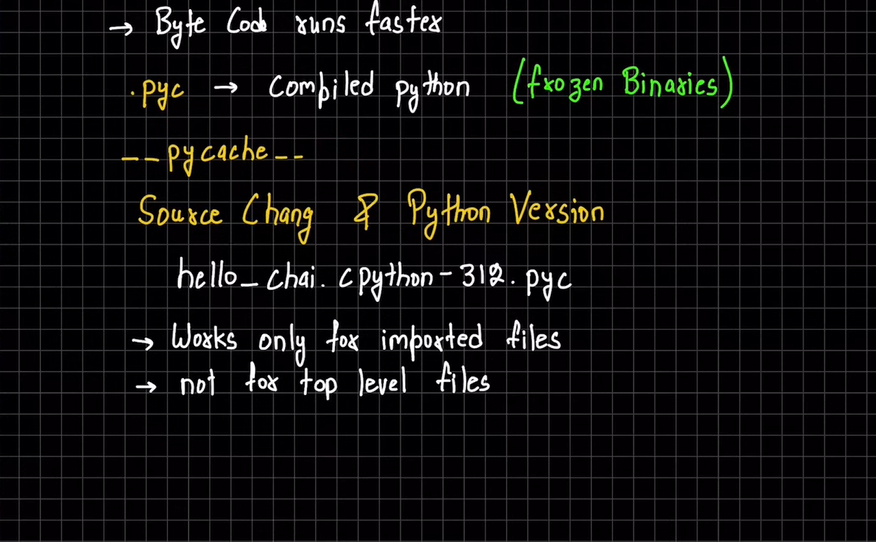 → Byte Code runs faster
.pyc → Compiled python (frozen Binaries)
__pycache__
Source Chang & Python Version
hello_chai.cpython-312.pyc
→ Works only for imported files
→ not for top level files